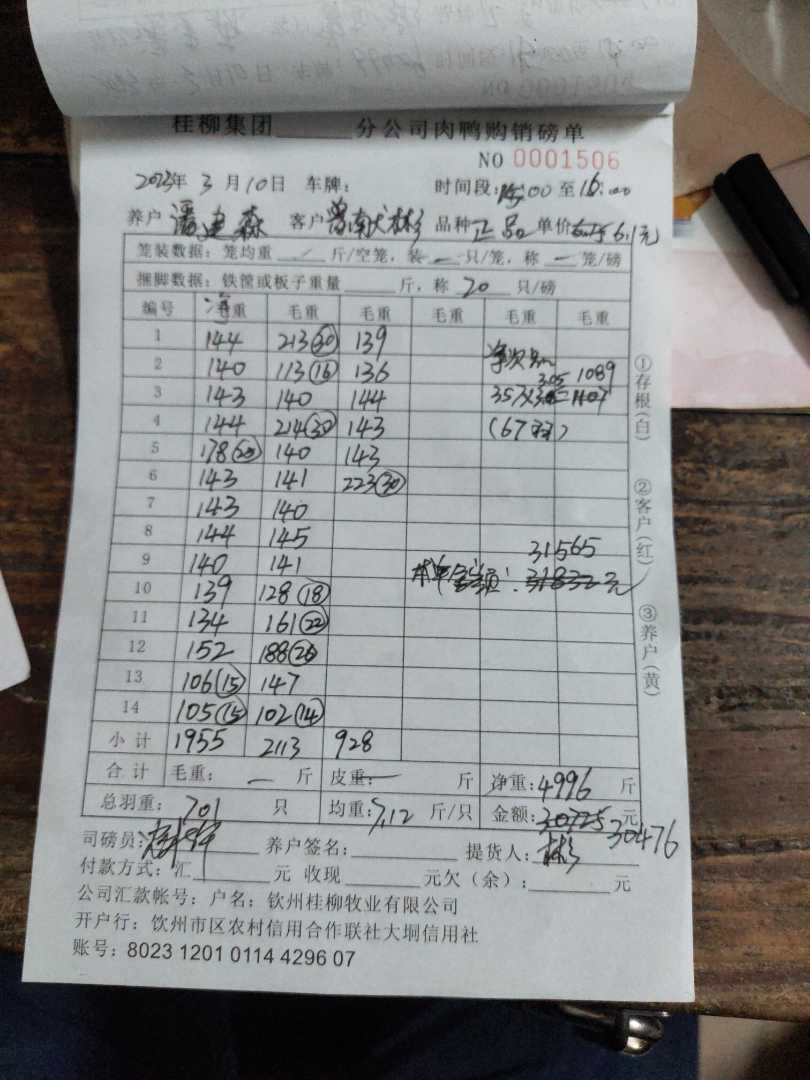 桂柳集团______分公司肉鸭购销磅单
NO 0001506
2023年 3月10日 车牌: 时间段:15:00 至 16:00
养户 潘建森 客户 曾南 彬 品种 正品 单价 6.1元
笼装数据: 笼均重 — 斤/空笼, 装 — 只/笼, 称 — 笼/磅
捆脚数据: 铁筐或板子重量 斤, 称 20 只/磅
编号 净重 毛重 毛重 毛重 毛重 毛重
1 144 213(30) 139
2 140 113(16) 136
3 143 140 144 357 305 1089
4 144 214(30) 143 (67羽)
5 178(25) 140 143
6 143 141 223(30)
7 143 140
8 144 145
9 140 141 31565
10 139 128(18) 31832元
11 134 161(22)
12 152 188(26)
13 106(15) 147
14 105(15) 102(14)
小计 1955 2113 928
合计 毛重: — 斤 皮重: — 斤 净重: 4996 斤
总羽重: 701 只 均重: 7.12 斤/只 金额: 30725 元
30476
司磅员: 养户签名: 提货人: 彬
付款方式: 汇 元 收现 元欠(余): 元
公司汇款帐号: 户名: 钦州桂柳牧业有限公司
开户行: 钦州市区农村信用合作联社大垌信用社
账号: 8023 1201 0114 4296 07
①存根(白)
②客户(红)
③养户(黄)